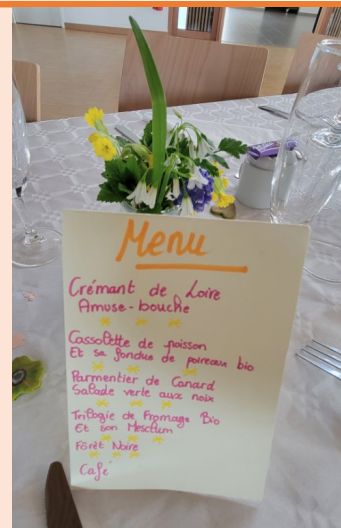 Menu
Crémant de Loire
Amuse-bouche
Cassolette de poisson
Et sa fondue de poireaux bio
Parmentier de Canard
Salade verte aux noix
Trilogie de Fromage Bio
Et son Mesclum
Forêt Noire
Café